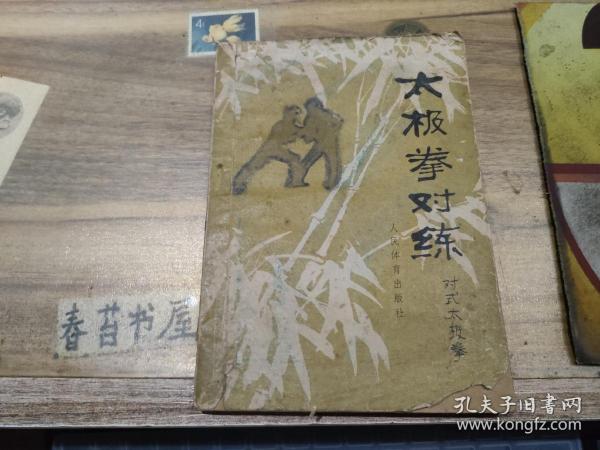 4
太极拳对练
人民体育出版社
对式太极拳
春苔书屋
孔夫子旧书网
www.kongfz.com